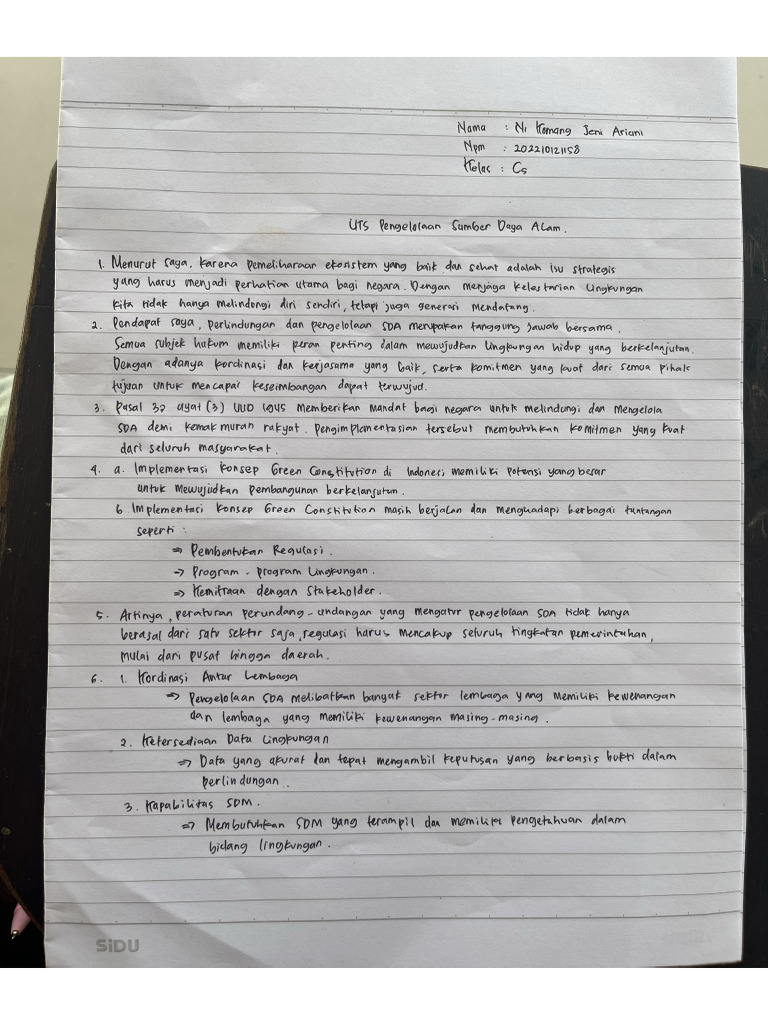 Nama : Ni Komang Jeni Ariani
Npm : 202210121158
Kelas : C5
UTS Pengelolaan Sumber Daya Alam.
1. Menurut saya, karena pemeliharaan ekosistem yang baik dan sehat adalah isu strategis
yang harus menjadi perhatian utama bagi negara. Dengan menjaga kelestarian lingkungan
kita tidak hanya melindungi diri sendiri, tetapi juga generasi mendatang.
2. Pendapat saya, perlindungan dan pengelolaan SDA merupakan tanggung jawab bersama.
Semua subjek hukum memiliki peran penting dalam mewujudkan lingkungan hidup yang berkelanjutan.
Dengan adanya kordinasi dan kerjasama yang baik, serta komitmen yang kuat dari semua pihak
tujuan untuk mencapai keseimbangan dapat terwujud.
3. Pasal 33 ayat (3) UUD 1945 memberikan mandat bagi negara untuk melindungi dan mengelola
SDA demi kemakmuran rakyat. Pengimplementasian tersebut membutuhkan komitmen yang kuat
dari seluruh masyarakat.
4. a. Implementasi konsep Green Constitution di Indonesi memiliki potensi yang besar
untuk mewujudkan pembangunan berkelanjutan.
b. Implementasi konsep Green Constitution masih berjalan dan menghadapi berbagai tantangan
seperti :
=> Pembentukan Regulasi.
-> Program - program lingkungan.
=> Kemitraan dengan stakeholder.
5. Artinya, peraturan perundang-undangan yang mengatur pengelolaan SDA tidak hanya
berasal dari satu sektor saja, regulasi harus mencakup seluruh tingkatan pemerintahan,
mulai dari pusat hingga daerah.
6. 1. Kordinasi Antar Lembaga
=> Pengelolaan SDA melibatkan banyak sektor lembaga yang memiliki kewenangan
dan lembaga yang memiliki kewenangan masing-masing.
2. Ketersediaan Data Lingkungan
=> Data yang akurat dan tepat mengambil keputusan yang berbasis bukti dalam
perlindungan.
3. Kapabilitas SDM.
=> Membutuhkan SDM yang terampil dan memiliki pengetahuan dalam
bidang lingkungan.
SiDU